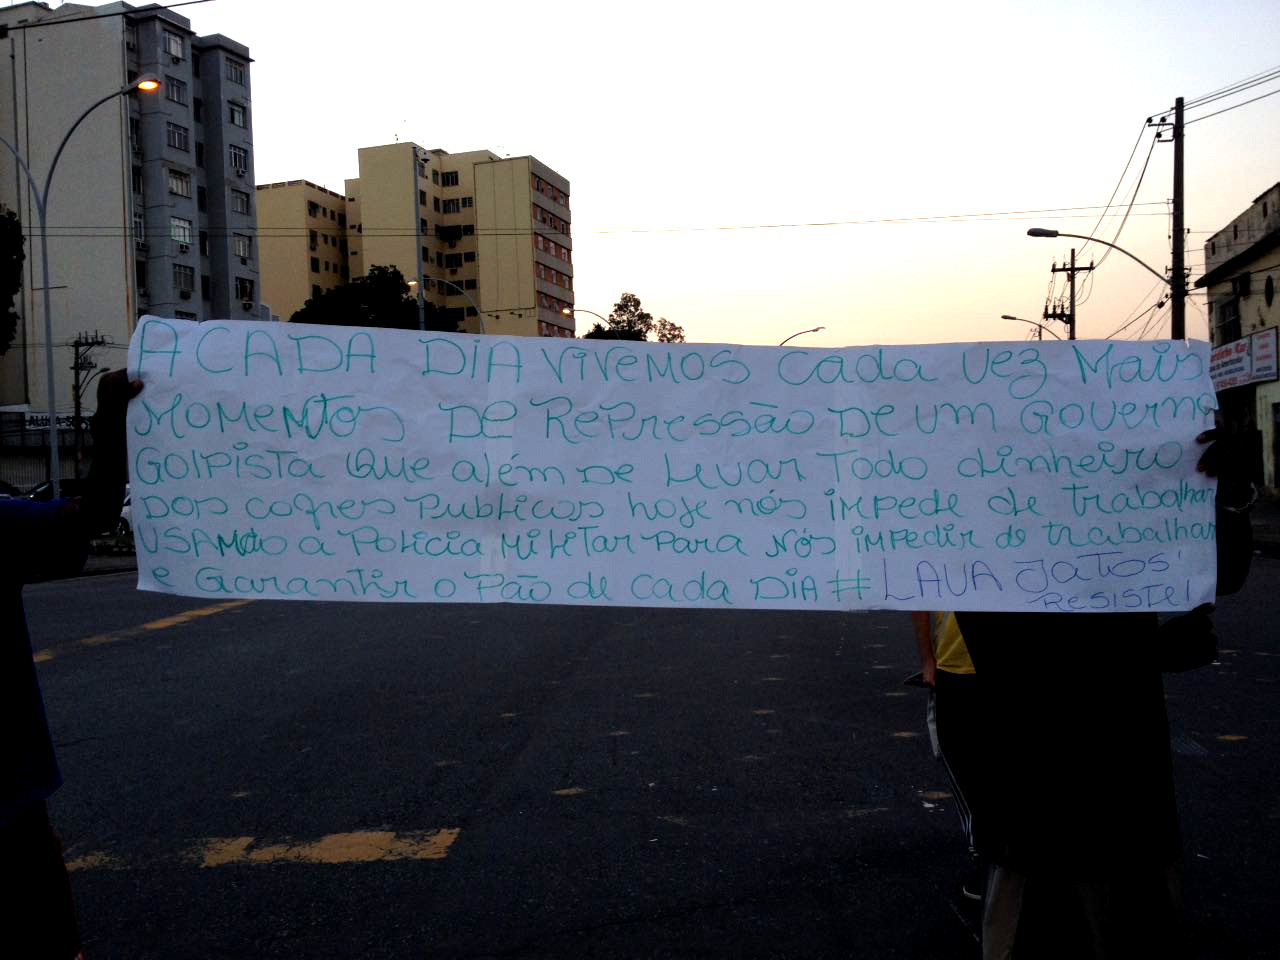 A CADA DIA VIVEMOS cada vez Mais
MOMENtos DE RePressão DE um Governo
GOLPISTA Que além DE Levar Todo dinheiro
DOS cofres Publicos hoje nós IMPEDE de trabalhar
USANdo a Policia Militar Para Nós impedir de trabalhar
e Garantir o Pão de cada DIA # LAVA JATOS'
RESISTE!